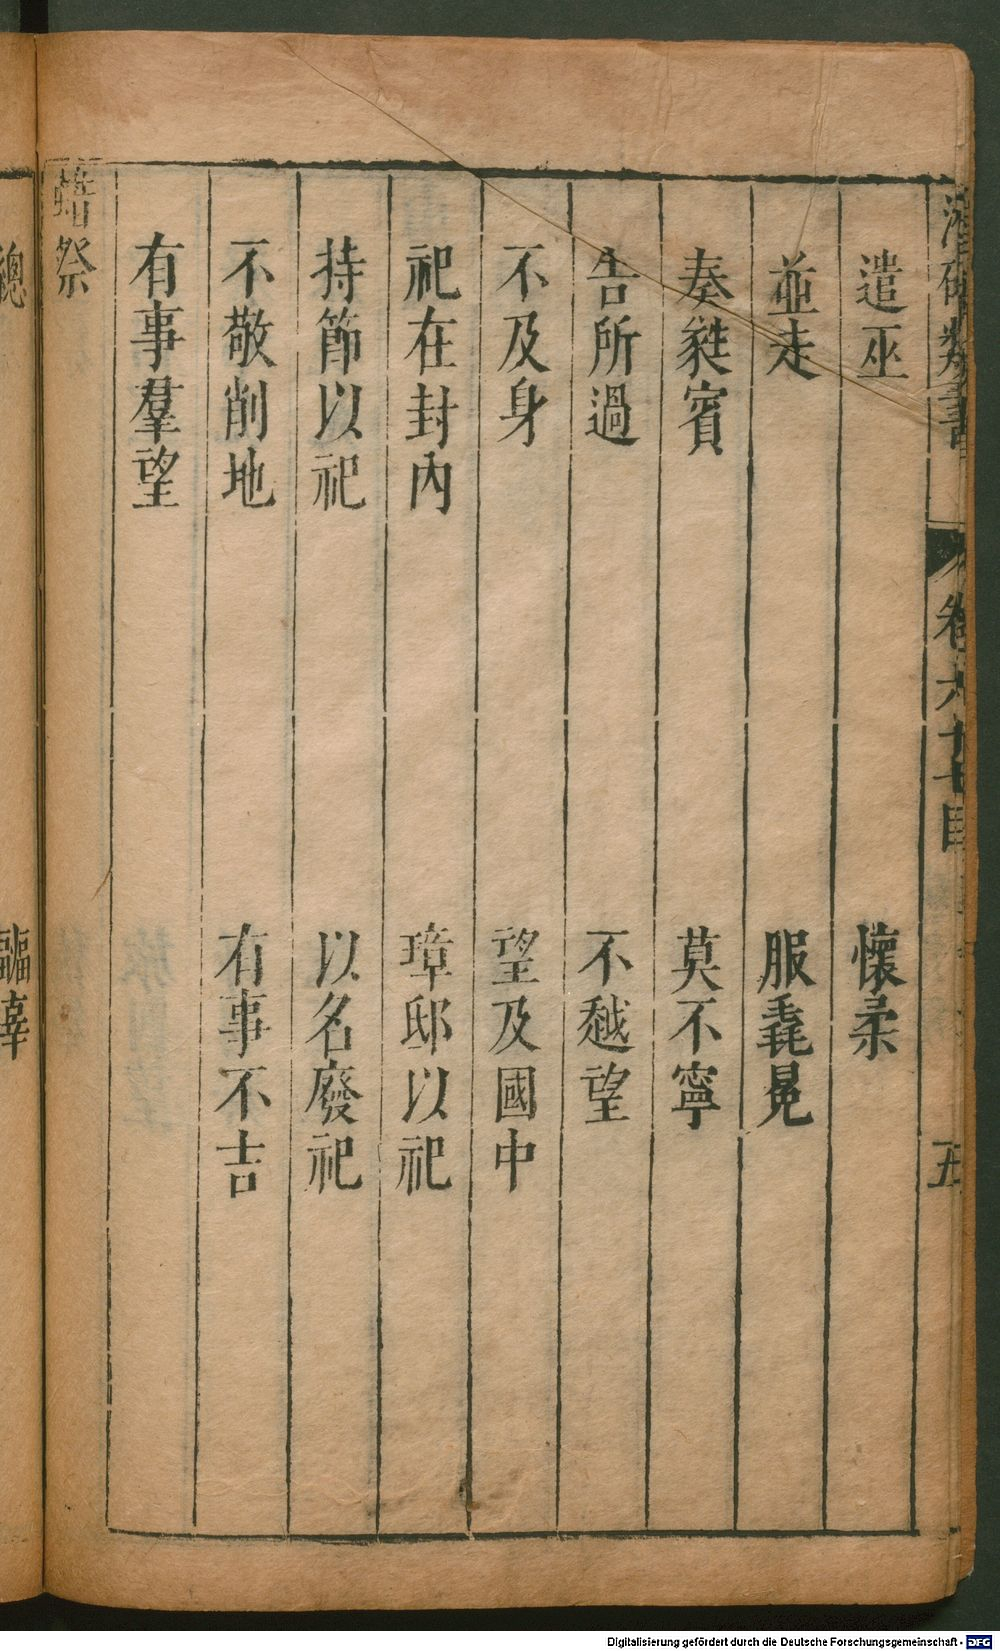 卷六十七目
五
遣巫 懷柔
並走 服毳冕
奏蕤賓 莫不寧
告所過 不越望
不及身 望及國中
祀在封內 璋邸以祀
持節以祀 以名廢祀
不敬削地 有事不吉
有事羣望
蜡祭
總
疈辜
Digitalisierung gefördert durch die Deutsche Forschungsgemeinschaft - DFG